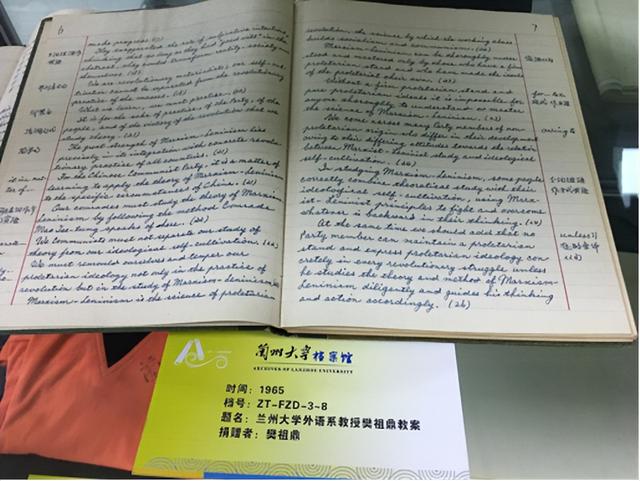 6
made progress. (17)
They exaggerated the role of subjective
thinking that so long as they had "good will"
reality, society
themselves. (18)
We are revolutionary materialists; our self-cultivation cannot be separated from the revolutionary
practice of the masses.
What we learn, we must practise.
It is for the sake of progress, of the Party, of the
people, and of the victory of the revolution that we
study theory.
The great strength of Marxism-Leninism lies
precisely in its integration with concrete revolutionary practice of all countries.
For the Chinese Communist Party, it is a matter of
learning to apply the theory of Marxism-Leninism
to the specific circumstances of China. (21)
Our comrades must study the theory of Marxism-
Leninism by following the method Comrade
Mao Tse-tung speaks of here.
We Communists must not separate our study of
theory from our ideological self-cultivation.
We must remould ourselves and temper our
proletarian ideology not only in the practice of
revolution but in the study of Marxism-Leninism
Marxism-Leninism is the science of proletarian
7
revolution, the science by which the working class
builds socialism and communism.
Marxism-Leninism can be thoroughly understood and mastered only by those who take a firm
proletarian stand and who have made the ideals
of the proletariat their own.
Without a firm proletarian stand and
pure proletarian ideals it is impossible for
anyone thoroughly to understand or master
the science of Marxism-Leninism.
We come across many Party members of non-
proletarian origin who differ in their ideology
owing to their differing attitudes towards the relation
between Marxist-Leninist study and ideological
self-cultivation.
In studying Marxism-Leninism, some people
correctly combine theoretical study with their
ideological self-cultivation, using Marxist-Leninist principles to fight and overcome
whatever is backward in their thinking.
At the same time we should add that no
Party member can maintain a proletarian
stand and express proletarian ideology concretely in every revolutionary struggle unless
he studies the theory and method of Marxism-
Leninism diligently and guides his thinking
and action accordingly. (26)
owing to
unless 引
兰州大学档案馆
ARCHIVES OF LANZHOU UNIVERSITY
时间：1965
档号：ZT-FZD-3-8
题名：兰州大学外语系教授樊祖鼎教案
捐赠者：樊祖鼎